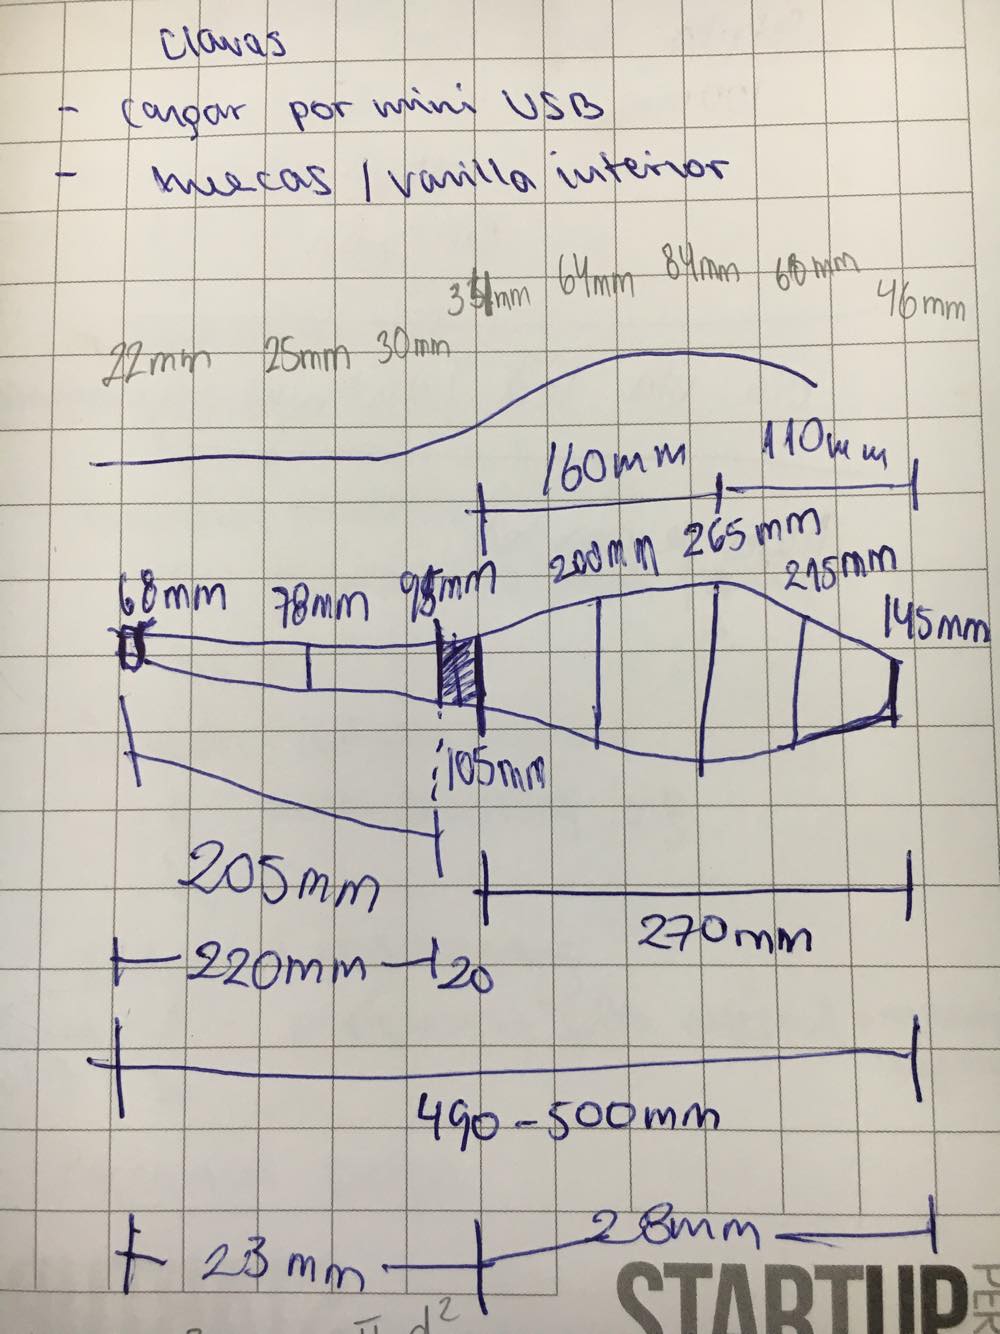 clavas
- cargar por mini USB
- muecas / varilla interior
22mm 25mm 30mm 34mm 64mm 84mm 68mm 46mm
160mm 110mm
68mm 78mm 95mm 200mm 265mm 215mm 145mm
105mm
205mm
270mm
220mm 20
490-500mm
23mm 28mm
STARTUP
PER
d²